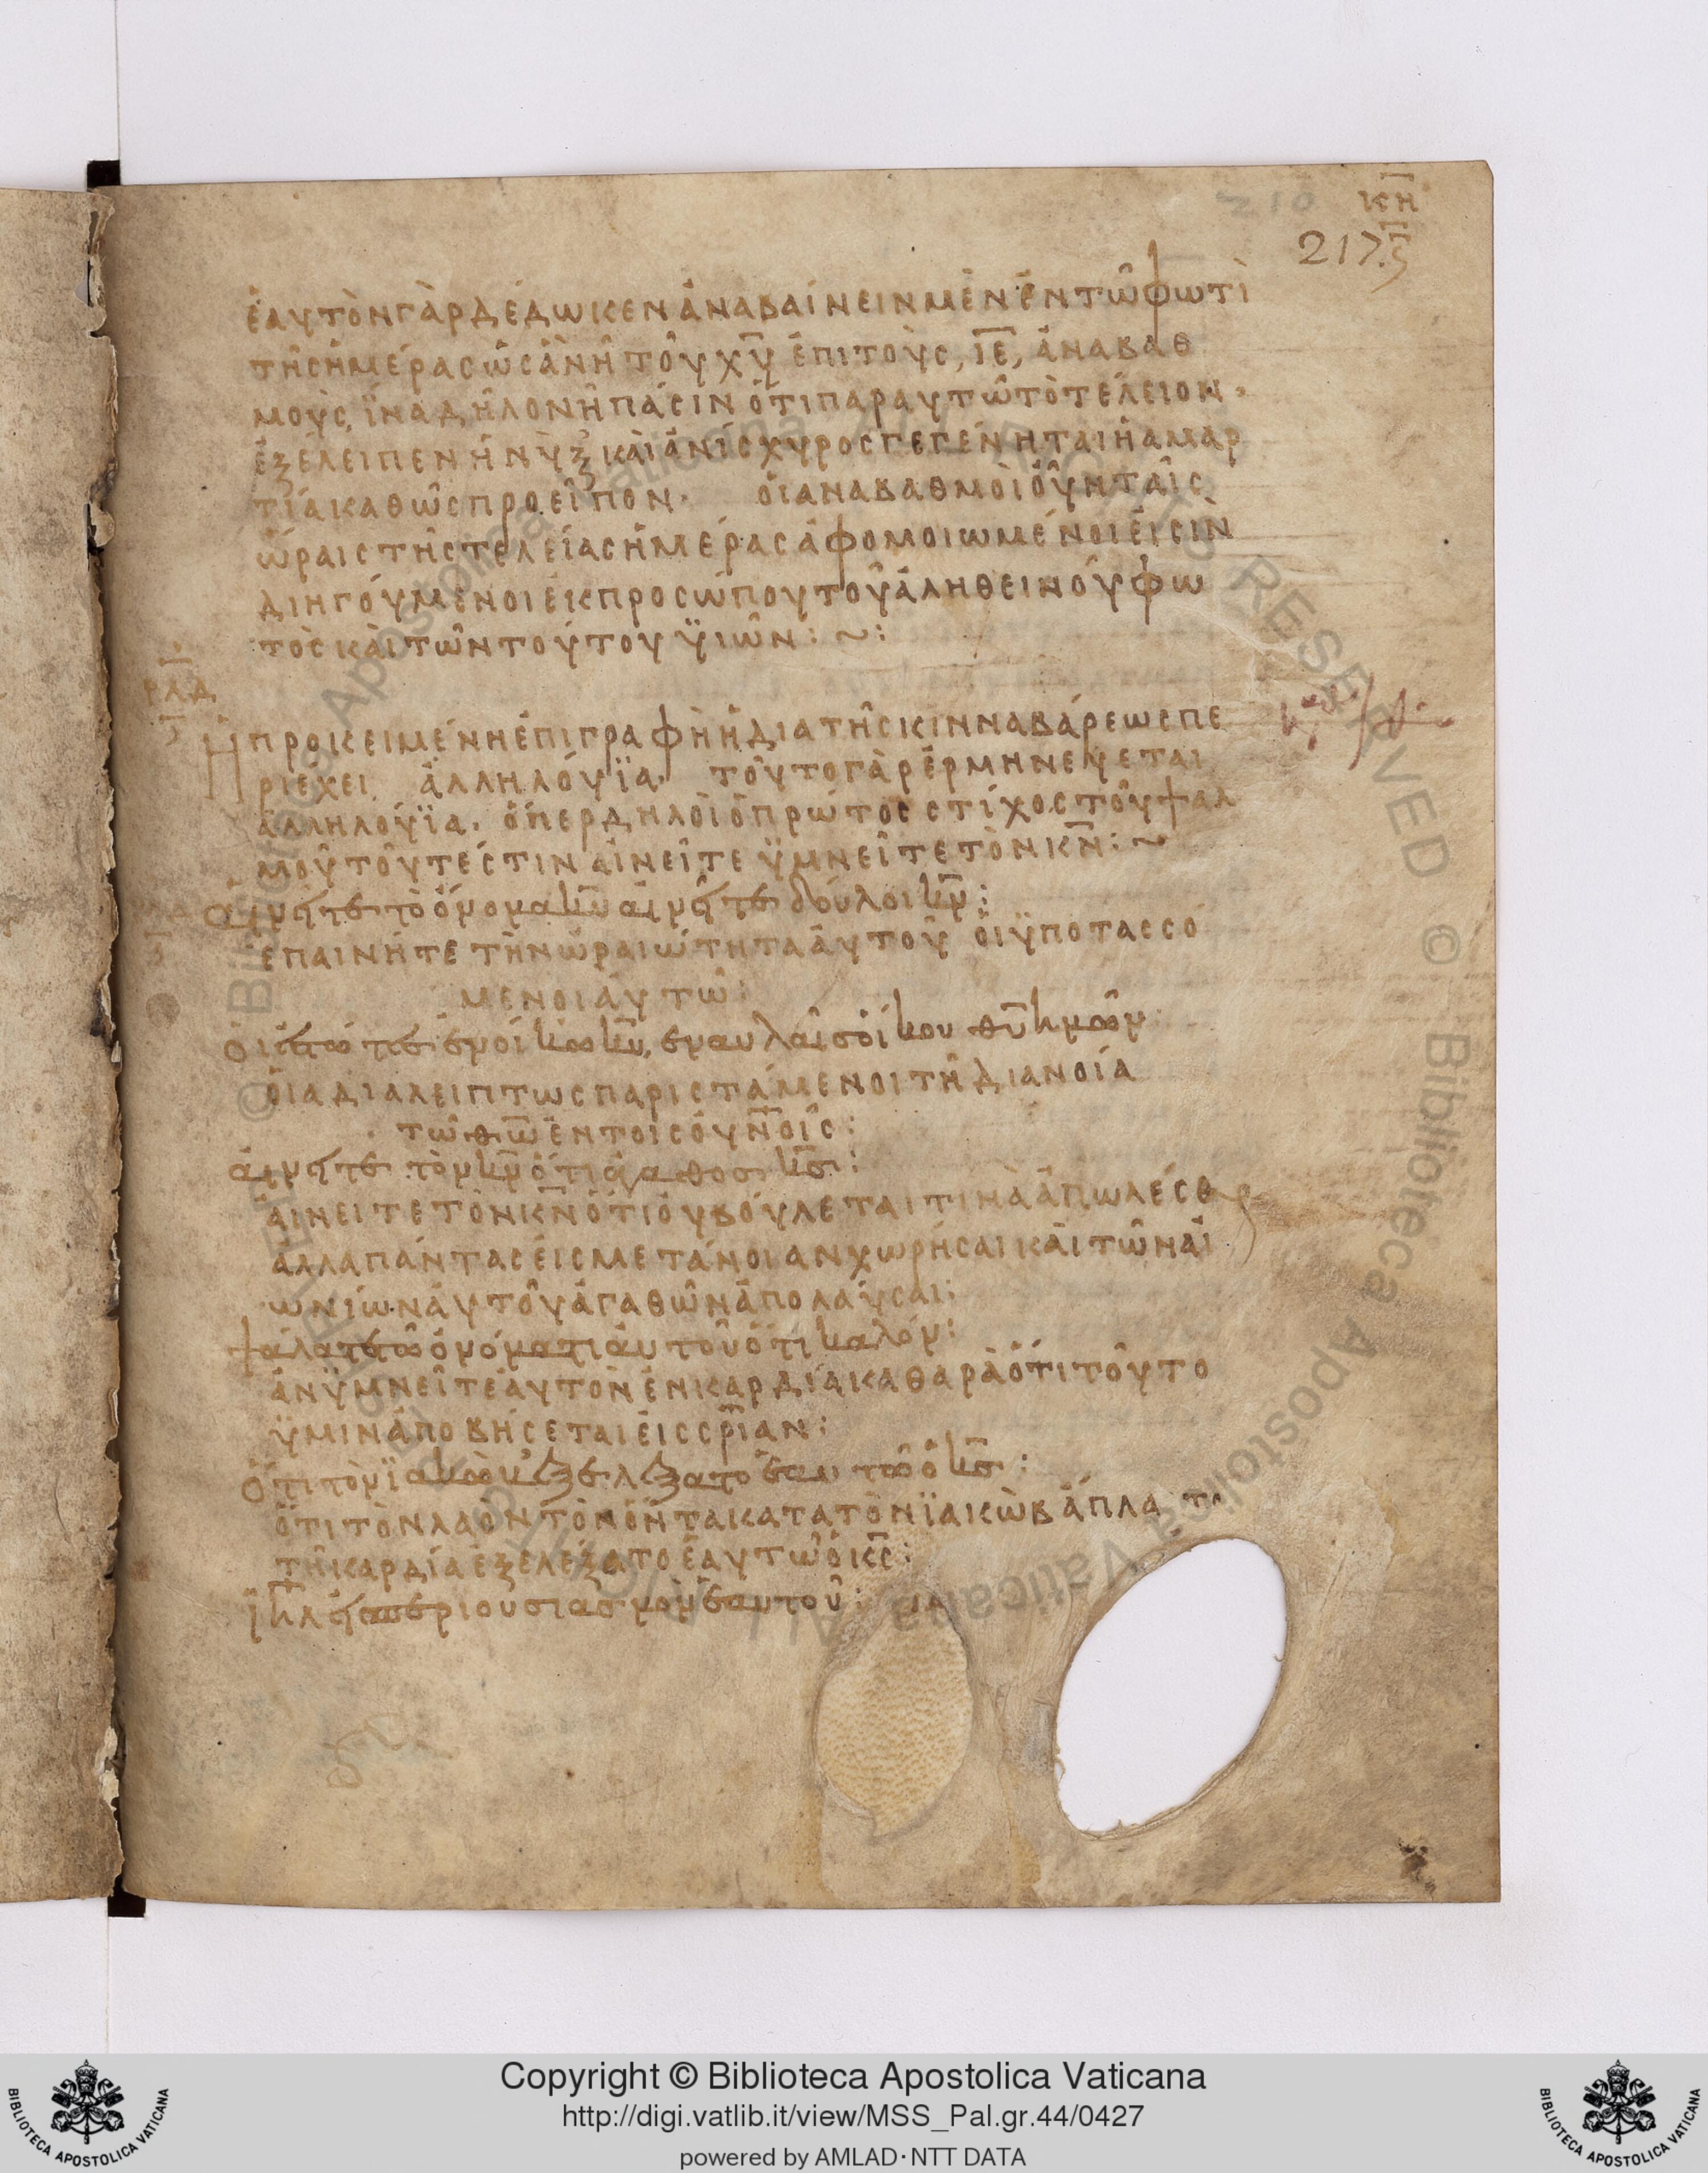 κη
217.
ἑαυτὸν γὰρ δέδωκεν ἀναβαίνειν μὲν ἐν τῶ φωτὶ
τῆς ἡμέρας ὡς ἂν ἦ τοῦ χυ ἐπι τοὺς, ιε, ἀναβαθ
μοὺς, ἵνα δῆλον ἦ πάσιν ὅτι παρ αυτῶ τὸ τέλειον·
ἐξέλειπεν ἡ νὺξ καὶ ἀνίσχυρος γεγένηται ἡ αμαρ
τία καθὼς προεῖπον· οἱ αναβαθμοὶ οὖν ταῖς
ὥραις τῆς τελείας ἡμέρας ἀφομοιωμένοι εἰσὶν
διηγούμενοι ἐκ προσώπου τοῦ ἀληθεινοῦ φω
τὸς καὶ τῶν τούτου ϋιῶν : ~ :
ρλδ
Ἡ προκειμένη ἐπιγραφὴ ἡ δια τῆς κινναβάρεως πε
ριέχει ἀλληλούϊα· τοῦτο γὰρ ἑρμηνεύεται
ἀλληλούϊα· ὅπερ δηλοῖ ὁ πρώτος στίχος τοῦ ψαλ
μοῦ τοῦτέστιν αἰνεῖτε ϋμνεῖτε τὸν κν : ~
αἰνῆτε τὸ ὄνομα κυ αἰνῆτε δοῦλοι κν :
ἐπαινήτε τὴν ὡραιώτητα ἀυτοῦ ὁι ϋποτασσό
μενοι ἀυτῶ :
Οἱ ἑστώτες ἐν οίκω κυ, εν αυλαῖς οἴκου θυ ημῶν
ὁι αδιαλειπτως παριστάμενοι τῆ διανοία
τῶ θω ἐν τοις ουνοῖς :
ἀινῆτε τὸν κν ὅτι ἀγαθος κς :
ἀινειτε τὸν κν ὅτι ὀυ βούλεται τινὰ ἀπωλέσθαι
ἀλλα πάντας ἐις μετάνοιαν χωρήσαι κὰι τῶν ἀι
ωνίων ἀυτοῦ ἀγαθῶν ἀπολαύσαι :
ψάλατε τῶ ὀνόματι ἀυτοῦ ὅτι καλόν :
ἀνϋμνεῖτε ἀυτὸν ἐν καρδία καθαρὰ ὅτι τοῦτο
ϋμιν ἀποβήσεται ἐις σρίαν :
Ὅτι τὸν ϊακὼβ ἐξελέξατο ἑαυτῶ ὁ κς :
ὅτι τὸν λαὸν τὸν ὄντα κατα τὸν ϊακὼβ ἅπλαστον
τῆ καρδία ἐξελέξατο ἑαυτῶ ὁ κς :
ιηλ ἐις περιουσιασμὸν ἑαυτοῦ :
Copyright © Biblioteca Apostolica Vaticana
http://digi.vatlib.it/view/MSS_Pal.gr.44/0427
powered by AMLAD·NTT DATA
BIBLIOTECA APOSTOLICA VATICANA
BIBLIOTECA APOSTOLICA VATICANA